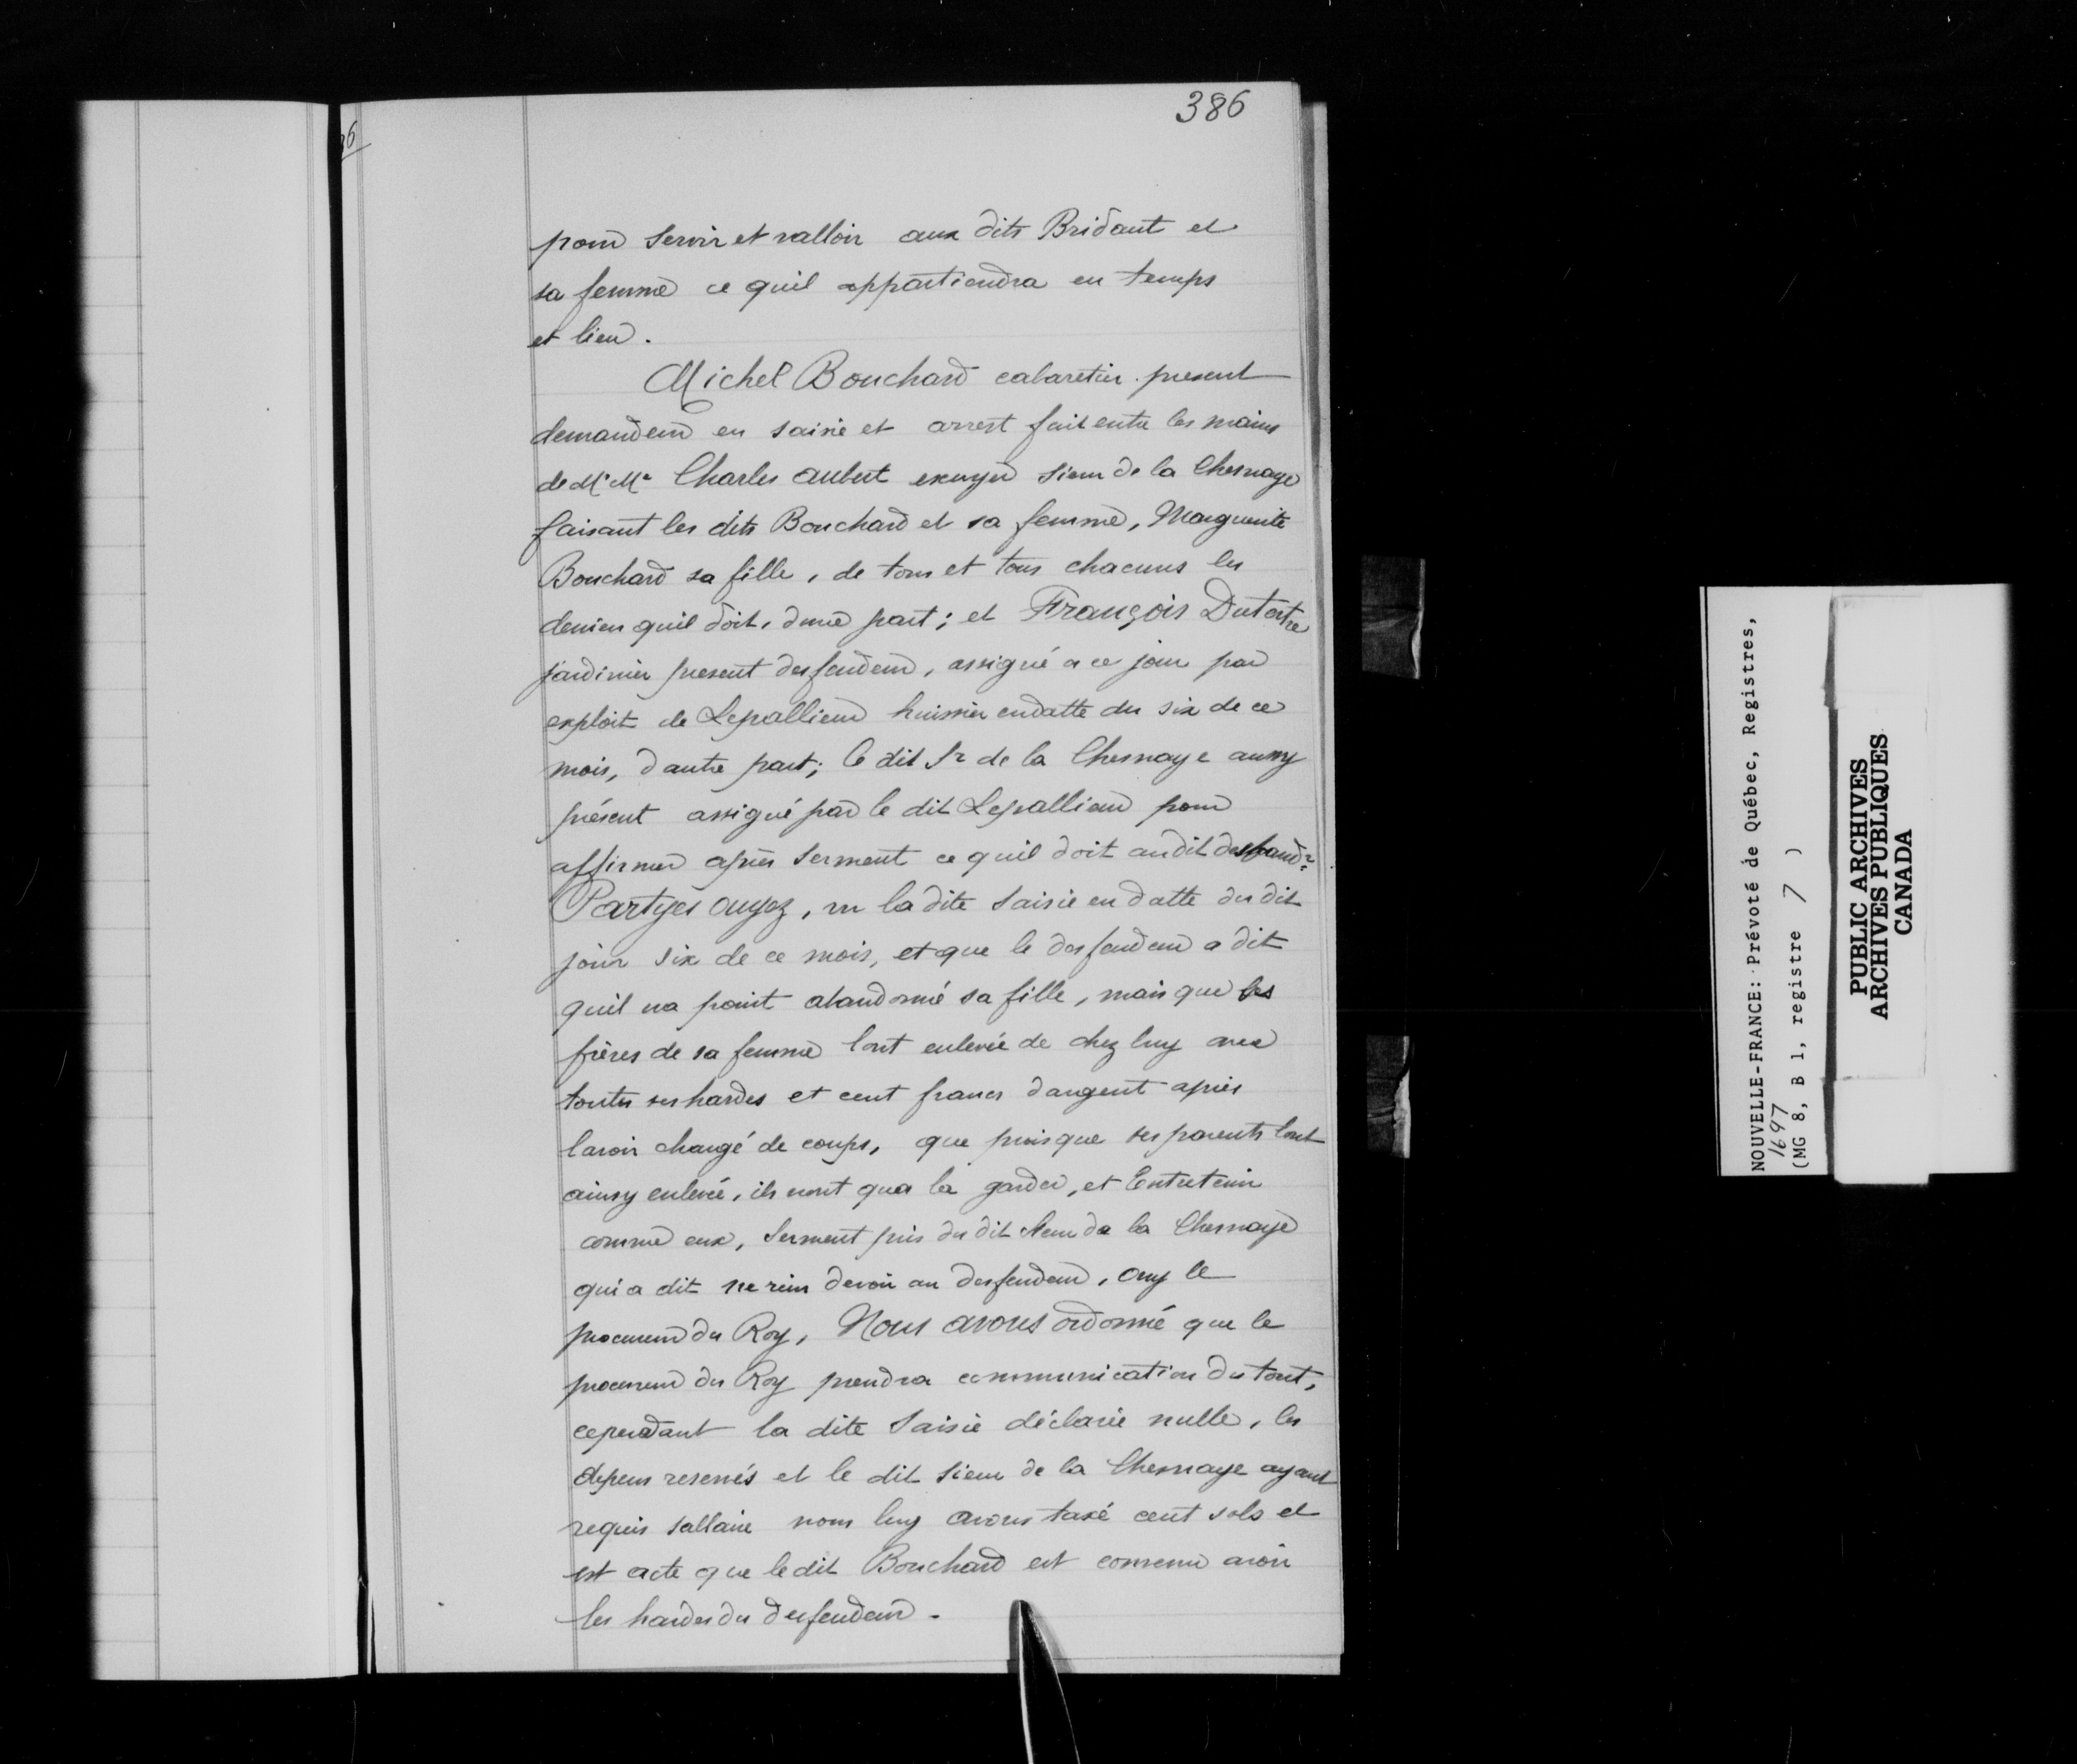 386
pour servir et valloir aux dits Bridaut et
sa femme ce quil appartiendra en temps
et lieu.
Michel Bouchard cabaretier present
demandeur en saisie et arrest fait entre les mains
de Mr Me Charles aubert escuyer sieur de la Chesnaye
faisant les dits Bouchard et sa femme, Marguerite
Bouchard sa fille, de tous et tous chacuns les
deniers quil doit, dune part; et François Dutertre
jardinier present desfendeur, assigné a ce jour par
exploit de Lepallieur huissier endatte du six de ce
mois, dautre part; le dit Sr de la Chesnaye aussy
présent assigné par le dit Lepallieur pour
affirmer après serment ce quil doit audit
Partyes ouyez, vu la dite saisie en datte du dit
jour six de ce mois, et que le desfendeur a dit
quil na point abandonné sa fille, mais que les
frères de sa femme lont enlevée de chez luy avec
toutes ses hardes et cent francs dargent après
lavoir chargé de coups, que puisque ses parents lont
ainsy enlevée, ils nont qua la garder, et Entretenir
comme eux, serment pris du dit sieur de la Chesnaye
qui a dit ne rien devoir au desfendeur, ouy le
procureur du Roy, Nous avons ordonné que le
procureur du Roy prendra communication du tout,
cependant la dite saisie déclarée nulle, les
depens reservés et le dit sieur de la Chesnaye ayant
requis sallaire nous luy avons taxé cent sols et
est acte que le dit Bouchard est convenu avoir
les hardes du desfendeur.
NOUVELLE-FRANCE: Prévoté de Québec, Registres,
1697
(MG 8, B 1, registre 7 )
PUBLIC ARCHIVES
ARCHIVES PUBLIQUES
CANADA